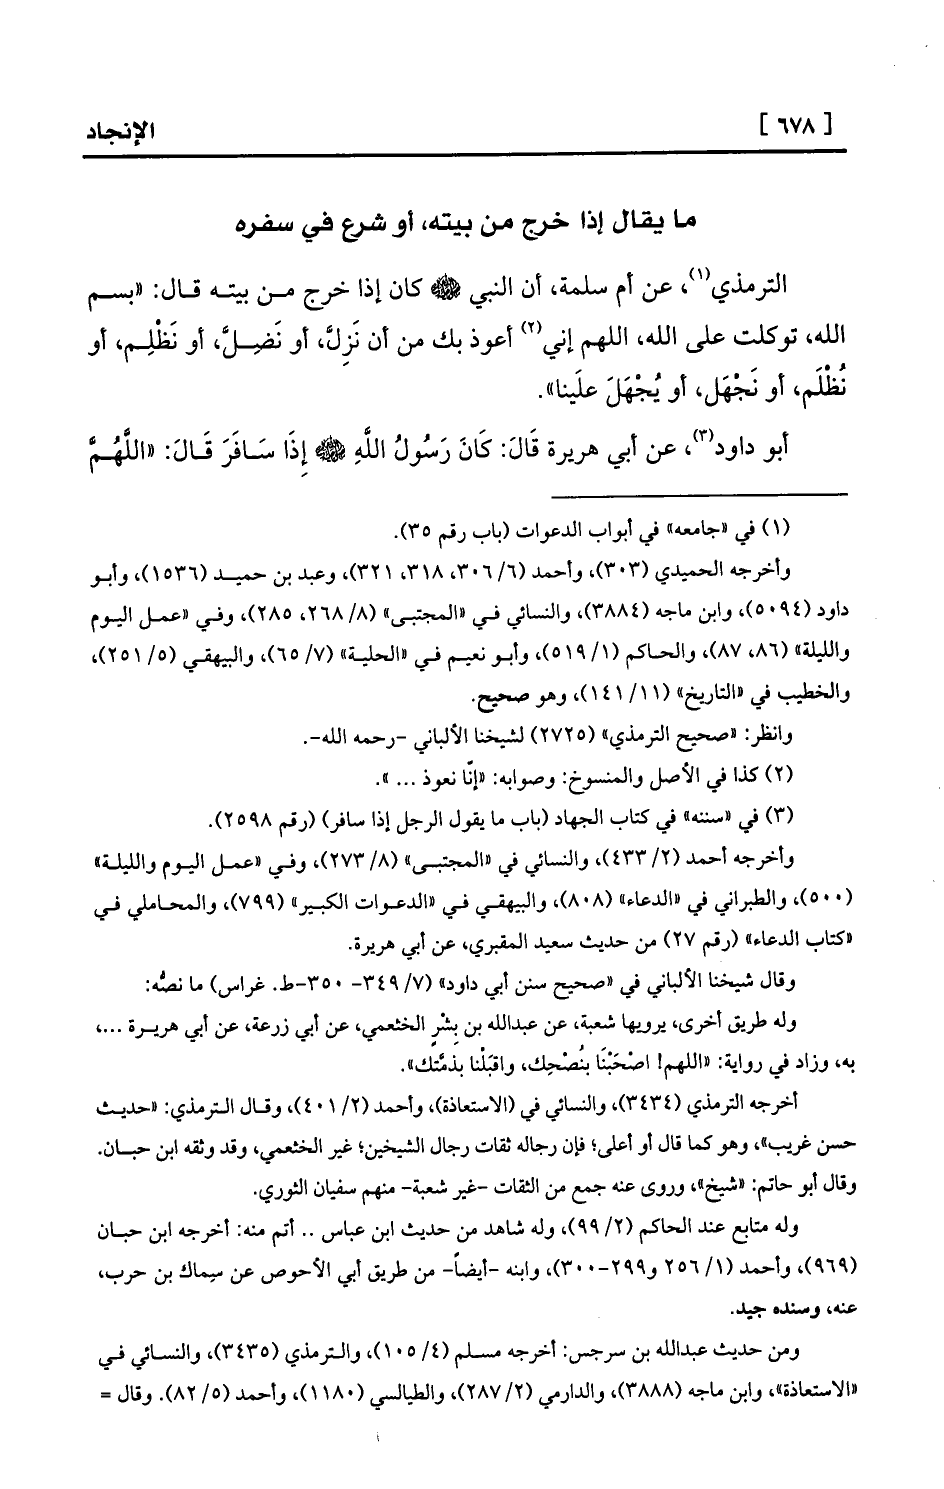 [ ٦٧٨ ] الإنجاد
ما يقال إذا خرج من بيته، أو شرع في سفره
الترمذي(١)، عن أم سلمة، أن النبي ﷺ كان إذا خرج من بيته قال: «بسم
الله، توكلت على الله، اللهم إني(٢) أعوذ بك من أن نَزِلَّ، أو نَضِلَّ، أو نَظْلِم، أو
نُظْلَم، أو نَجْهَل، أو يُجْهَلَ علَينا».
أبو داود(٣)، عن أبي هريرة قَالَ: كَانَ رَسُولُ اللَّهِ ﷺ إِذَا سَافَرَ قَالَ: «اللَّهُمَّ
(١) في «جامعه» في أبواب الدعوات (باب رقم ٣٥).
وأخرجه الحميدي (٣٠٣)، وأحمد (٦/ ٣٠٦، ٣١٨، ٣٢١)، وعبد بن حميد (١٥٣٦)، وأبو
داود (٥٠٩٤)، وابن ماجه (٣٨٨٤)، والنسائي في «المجتبى» (٨/ ٢٦٨، ٢٨٥)، وفي «عمل اليوم
والليلة» (٨٦، ٨٧)، والحاكم (١/ ٥١٩)، وأبو نعيم في «الحلية» (٧/ ٦٥)، والبيهقي (٥/ ٢٥١)،
والخطيب في «التاريخ» (١١/ ١٤١)، وهو صحيح.
وانظر: «صحيح الترمذي» (٢٧٢٥) لشيخنا الألباني -رحمه الله-.
(٢) كذا في الأصل والمنسوخ: وصوابه: «إنّا نعوذ ... ».
(٣) في «سننه» في كتاب الجهاد (باب ما يقول الرجل إذا سافر) (رقم ٢٥٩٨).
وأخرجه أحمد (٢/ ٤٣٣)، والنسائي في «المجتبى» (٨/ ٢٧٣)، وفي «عمل اليوم والليلة»
(٥٠٠)، والطبراني في «الدعاء» (٨٠٨)، والبيهقي في «الدعوات الكبير» (٧٩٩)، والمحاملي في
«كتاب الدعاء» (رقم ٢٧) من حديث سعيد المقبري، عن أبي هريرة.
وقال شيخنا الألباني في «صحيح سنن أبي داود» (٧/ ٣٤٩- ٣٥٠-ط. غراس) ما نصُّه:
وله طريق أخرى، يرويها شعبة، عن عبدالله بن بِشْرٍ الخثعمي، عن أبي زرعة، عن أبي هريرة ...،
به، وزاد في رواية: «اللهم! اصْحَبْنَا بنُصْحِك، واقبَلْنا بذمَّتك».
أخرجه الترمذي (٣٤٣٤)، والنسائي في (الاستعاذة)، وأحمد (٢/ ٤٠١)، وقال الترمذي: «حديث
حسن غريب»، وهو كما قال أو أعلى؛ فإن رجاله ثقات رجال الشيخين؛ غير الخثعمي، وقد وثقه ابن حبان.
وقال أبو حاتم: «شيخ»، وروى عنه جمع من الثقات -غير شعبة- منهم سفيان الثوري.
وله متابع عند الحاكم (٢/ ٩٩)، وله شاهد من حديث ابن عباس .. أتم منه: أخرجه ابن حبان
(٩٦٩)، وأحمد (١/ ٢٥٦ و٢٩٩-٣٠٠)، وابنه -أيضاً- من طريق أبي الأحوص عن سِماك بن حرب،
عنه، وسنده جيد.
ومن حديث عبدالله بن سرجس: أخرجه مسلم (٤/ ١٠٥)، والترمذي (٣٤٣٥)، والنسائي في
«الاستعاذة»، وابن ماجه (٣٨٨٨)، والدارمي (٢/ ٢٨٧)، والطيالسي (١١٨٠)، وأحمد (٥/ ٨٢). وقال =